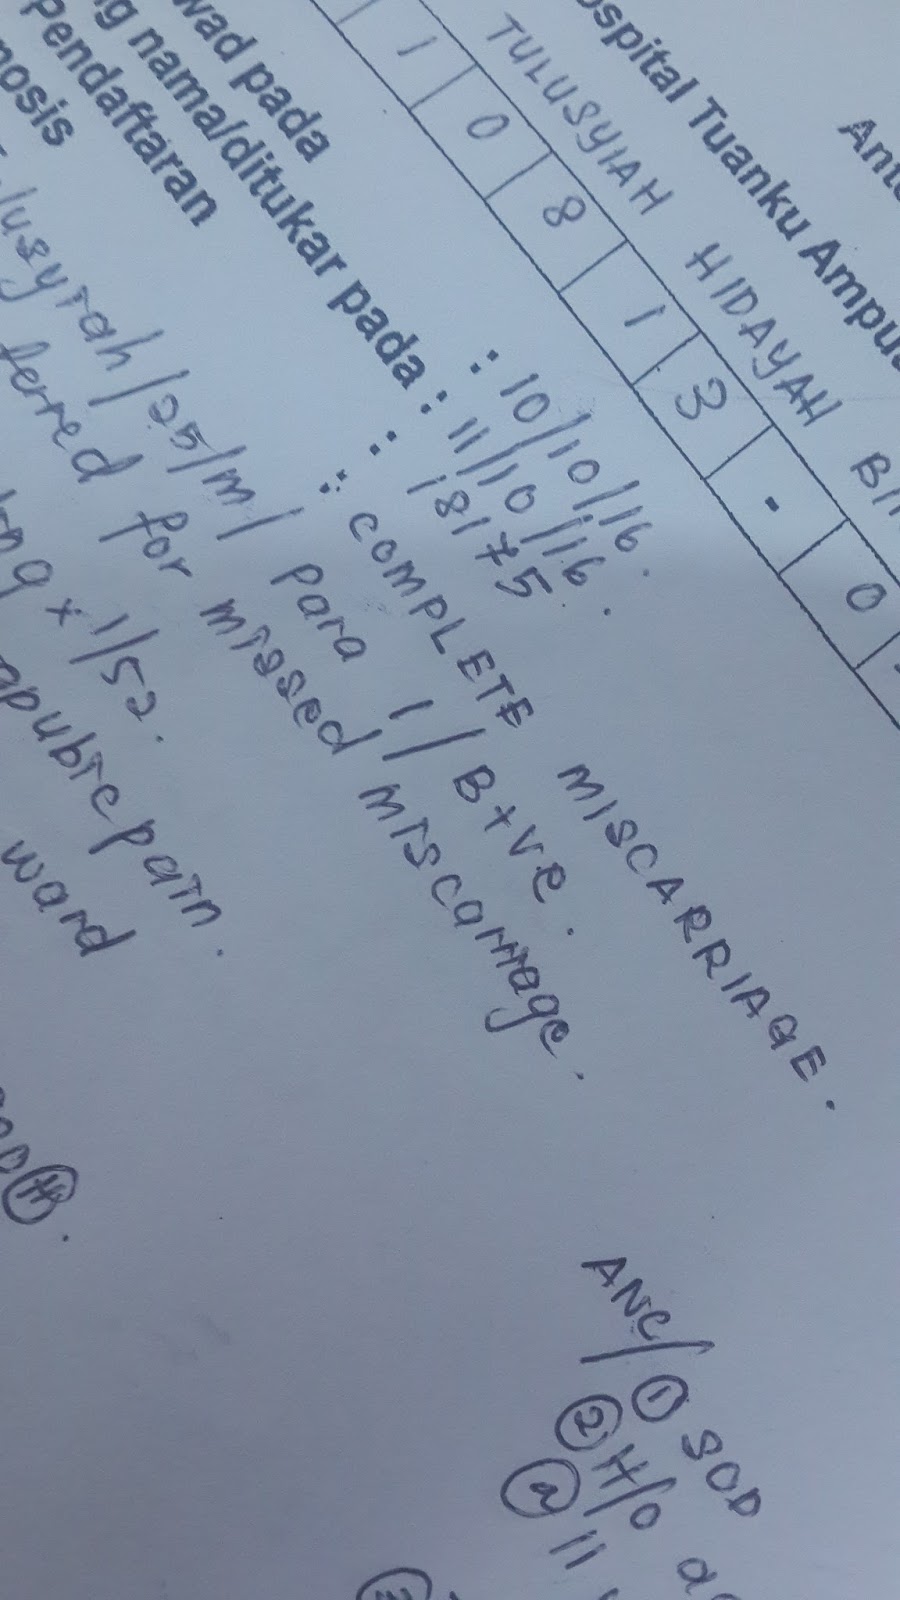 Hospital Tuanku Ampua
TULUSYIAH HIDAYAH BI
1 0 8 1 3 - 0
wad pada : 10/10/16.
nama/ditukar pada : 11/10/16.
Pendaftaran : 18175
nosis : COMPLETE MISCARRIAGE.
lusyiah/25/M/ Para 1/ B+ve.
ferred for missed miscarriage.
x 1/52.
apubic pain.
ward
ANC/ ① SOD
② H/O
ⓐ 11